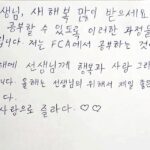 생님, 새해 복 많이 받으세요
공부할 수 있도록 이러한 과정을
입니다. 저는 FCA에서 공부하는 것이
해에 선생님께 행복과 사랑 그리
다. 올해는 선생님의 위해서 제일 좋은
다.
사랑으로